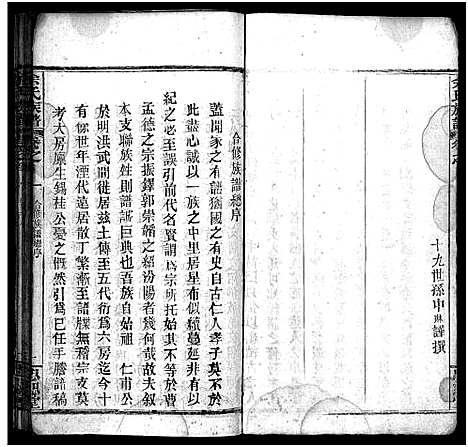 余氏族譜
十九世孫申㴋謹撰
合修族譜總序
蓋聞家之有譜猶國之有史自古仁人孝子莫不於
此盡心誠以一族之中里居星布似續蔓延非有以
紀之必至誤引前代名賢謂爲宗所托始其不等於曹
孟德之宗振鐸郭崇韜之紹汾陽者幾何哉故夫叙
本支聯族姓則譜誠巨典也吾族自始祖 仁甫公
於明洪武間徙居茲土傳至五代衍爲六房迄今十
有餘世年湮代遠居散丁繁漸至譜牒無稽宗支莫
考大房廩生錫桂公憂之慨然引爲己任手謄譜稿
余氏族譜 卷之一 合修族譜總序 一